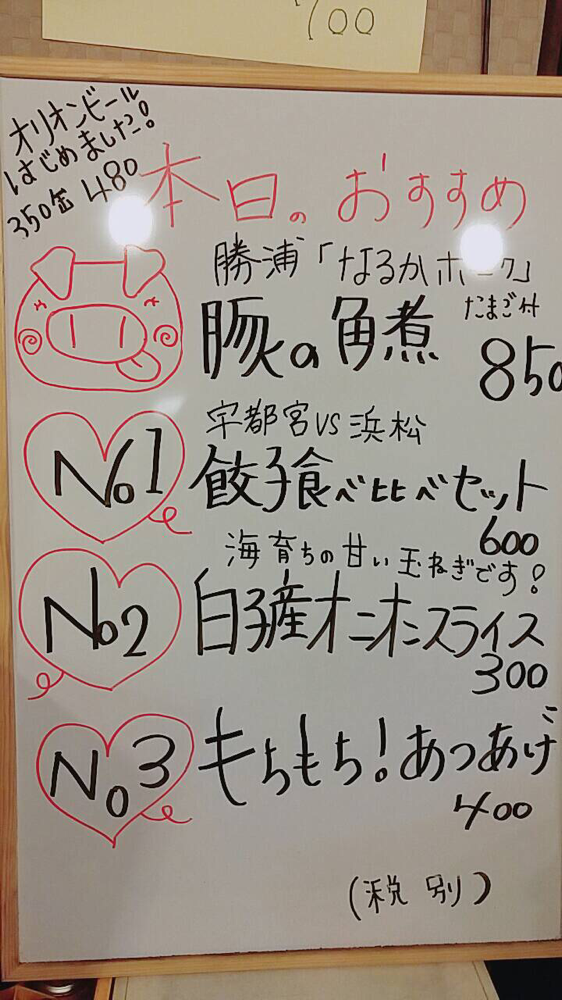 700
オリオンビール
はじめました!
350缶 480
本日のおすすめ
勝浦「なるかポーク」
豚の角煮 たまご付
850
No1
宇都宮VS浜松
餃子食べ比べセット
600
海育ちの甘い玉ねぎです!
No2
白子産オニオンスライス
300
No3
もちもち!あつあげ
400
(税別)